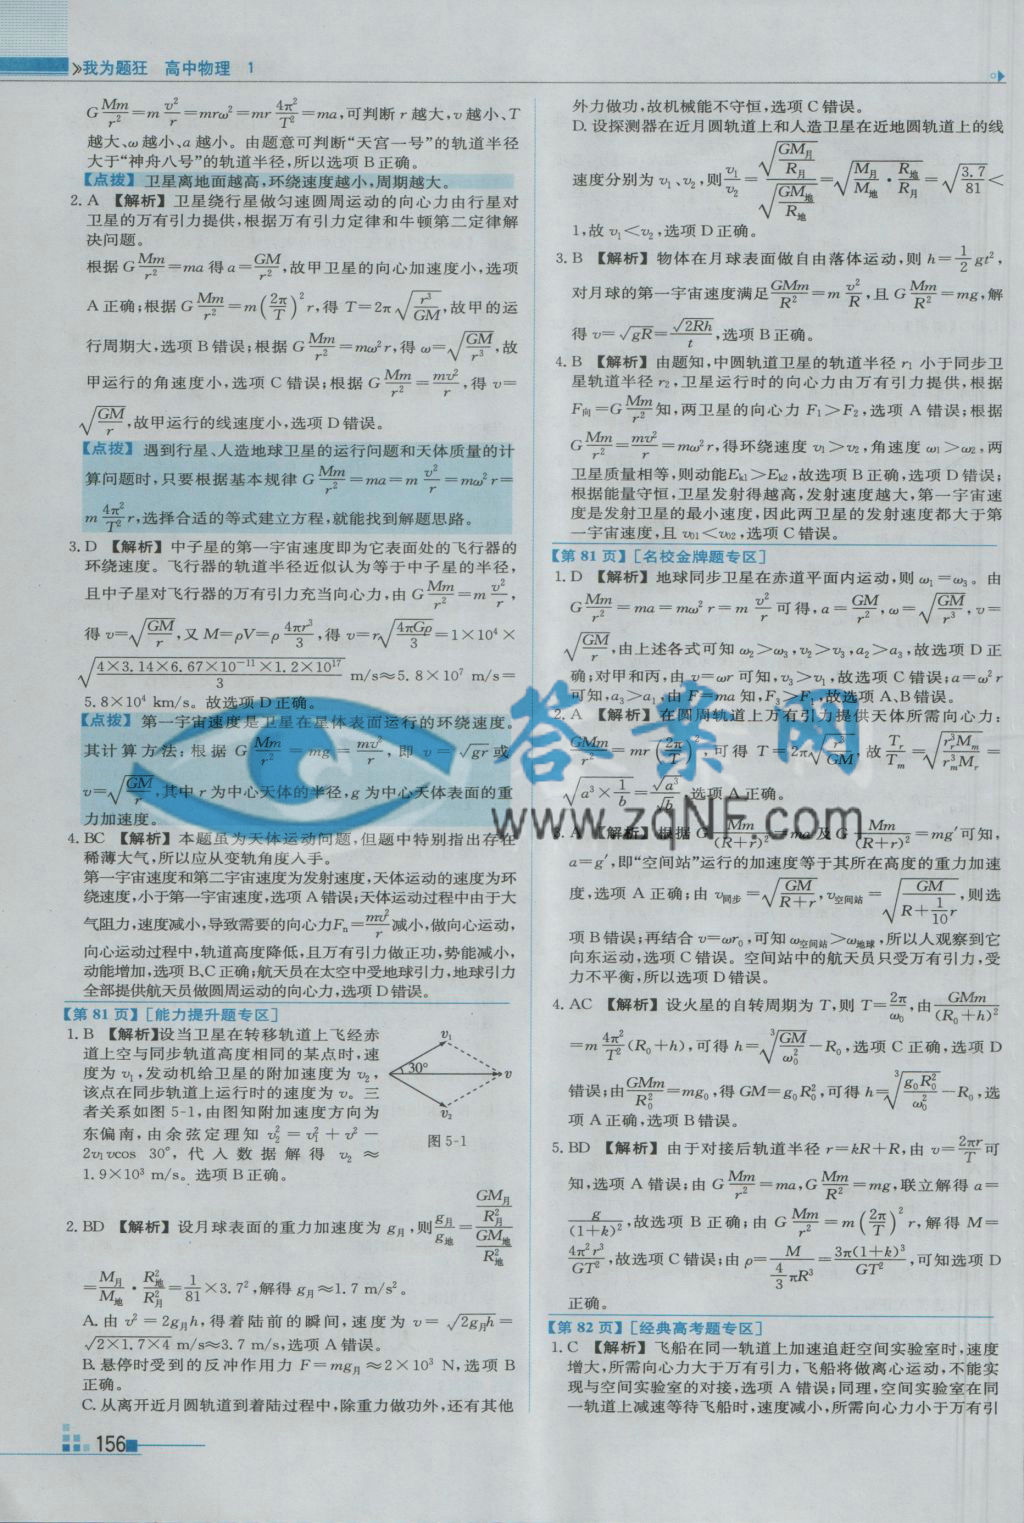 我为题狂 高中物理 1
G Mm/r² = m v²/r = mrω² = mr 4π²/T² = ma,可判断 r 越大,v 越小、T
越大、ω 越小、a 越小。由题意可判断“天宫一号”的轨道半径
大于“神舟八号”的轨道半径,所以选项 B 正确。
【点拨】 卫星离地面越高,环绕速度越小,周期越大。
2. A 【解析】 卫星绕行星做匀速圆周运动的向心力由行星对
卫星的万有引力提供,根据万有引力定律和牛顿第二定律解
决问题。
根据 G Mm/r² = ma 得 a = GM/r²,故甲卫星的向心加速度小,选项
A 正确;根据 G Mm/r² = m(2π/T)² r,得 T = 2π√(r³/GM),故甲的运
行周期大,选项 B 错误;根据 G Mm/r² = mω²r,得 ω = √(GM/r³),故
甲运行的角速度小,选项 C 错误;根据 G Mm/r² = mv²/r,得 v =
√(GM/r),故甲运行的线速度小,选项 D 错误。
【点拨】 遇到行星、人造地球卫星的运行问题和天体质量的计
算问题时,只要根据基本规律 G Mm/r² = ma = m v²/r = mω²r =
m 4π²/T² r,选择合适的等式建立方程,就能找到解题思路。
3. D 【解析】 中子星的第一宇宙速度即为它表面处的飞行器的
环绕速度。飞行器的轨道半径近似认为等于中子星的半径,
且中子星对飞行器的万有引力充当向心力,由 G Mm/r² = m v²/r,
得 v = √(GM/r),又 M = ρV = ρ 4πr³/3,得 v = r√(4πGρ/3) = 1×10⁴×
√(4×3.14×6.67×10⁻¹¹×1.2×10¹⁷/3) m/s≈5.8×10⁷ m/s=
5.8×10⁴ km/s。故选项 D 正确。
【点拨】 第一宇宙速度是卫星在星体表面运行的环绕速度。
其计算方法:根据 G Mm/r² = mg = mv²/r,即 v = √gr 或
v = √(GM/r),其中 r 为中心天体的半径,g 为中心天体表面的重
力加速度。
4. BC 【解析】 本题虽为天体运动问题,但题中特别指出存在
稀薄大气,所以应从变轨角度入手。
第一宇宙速度和第二宇宙速度为发射速度,天体运动的速度为环
绕速度,小于第一宇宙速度,选项 A 错误;天体运动过程中由于大
气阻力,速度减小,导致需要的向心力Fₙ = mv²/r 减小,做向心运动,
向心运动过程中,轨道高度降低,且万有引力做正功,势能减小,
动能增加,选项 B、C 正确;航天员在太空中受地球引力,地球引力
全部提供航天员做圆周运动的向心力,选项 D 错误。
【第 81 页】[能力提升题专区]
1. B 【解析】设当卫星在转移轨道上飞经赤
道上空与同步轨道高度相同的某点时,速
度为 v₁,发动机给卫星的附加速度为 v₂,
该点在同步轨道上运行时的速度为 v。三
者关系如图 5-1,由图知附加速度方向为
东偏南,由余弦定理知 v₂² = v₁² + v² −
2v₁vcos 30°,代入数据解得 v₂ ≈
1.9×10³ m/s。选项 B 正确。
v₁
30°
v
v₂
图 5-1
2. BD 【解析】 设月球表面的重力加速度为 g月,则 g月/g地 = (GM月/R月²)/(GM地/R地²)
= M月/M地 · R地²/R月² = 1/81 ×3.7²,解得 g月≈1.7 m/s²。
A. 由 v² = 2g月h,得着陆前的瞬间,速度为 v = √2g月h =
√2×1.7×4 m/s≈3.7 m/s,选项 A 错误。
B. 悬停时受到的反冲作用力 F = mg月≈2×10³ N,选项 B
正确。
C. 从离开近月圆轨道到着陆过程中,除重力做功外,还有其他
156
外力做功,故机械能不守恒,选项 C 错误。
D. 设探测器在近月圆轨道上和人造卫星在近地圆轨道上的线
速度分别为 v₁、v₂,则 v₁/v₂ = √(GM月/R月)/√(GM地/R地) = √(M月/M地 · R地/R月) = √(3.7/81) <
1,故 v₁<v₂,选项 D 正确。
3. B 【解析】 物体在月球表面做自由落体运动,则 h = 1/2 gt²,
对月球的第一宇宙速度满足 GMm/R² = m v²/R,且 G Mm/R² = mg,解
得 v = √gR = √2Rh/t,选项 B 正确。
4. B 【解析】 由题知,中圆轨道卫星的轨道半径 r₁ 小于同步卫
星轨道半径 r₂,卫星运行时的向心力由万有引力提供,根据
F向 = G Mm/r² 知,两卫星的向心力 F₁>F₂,选项 A 错误;根据
G Mm/r² = mv²/r = mω²r,得环绕速度 v₁>v₂,角速度 ω₁>ω₂,两
卫星质量相等,则动能Eₖ₁>Eₖ₂,故选项 B 正确,选项 D 错误;
根据能量守恒,卫星发射得越高,发射速度越大,第一宇宙速
度是发射卫星的最小速度,因此两卫星的发射速度都大于第
一宇宙速度,且 v₀₁<v₀₂,选项 C 错误。
【第 81 页】[名校金牌题专区]
1. D 【解析】 地球同步卫星在赤道平面内运动,则 ω₁ = ω₃。由
G Mm/r² = ma = mω²r = m v²/r 可得,a = GM/r²,ω = √(GM/r³),v =
√(GM/r),由上述各式可知 ω₂>ω₃,v₂>v₃,a₂>a₃,故选项 D 正
确;对甲和丙,由 v = ωr 可知,v₃>v₁,故选项 C 错误;a = ω²r
可知,a₃>a₁,由 F = ma 知,F₃>F₁,故选项 A、B错误。
2. A 【解析】 在圆周轨道上万有引力提供天体所需向心力:
GMm/r² = mr(2π/T)²,可得 T = 2π√(r³/GM),故 Tᵣ/Tₘ = √(rᵣ³Mₘ/rₘ³Mᵣ) =
√(a³×1/b) = √a³/√b,选项 A 正确。
3. A 【解析】 根据 G Mm/(R+r)² = ma 及 G Mm/(R+r)² = mg′可知,
a = g′,即“空间站”运行的加速度等于其所在高度的重力加速
度,选项 A 正确;由 v同步 = √(GM/(R+r)),v空间站 = √(GM/(R+1/10 r)),则选
项 B错误;再结合 v = ωr₀,可知 ω空间站>ω地球,所以人观察到它
向东运动,选项 C 错误。空间站中的航天员只受万有引力,受
力不平衡,所以选项 D 错误。
4. AC 【解析】 设火星的自转周期为 T,则 T = 2π/ω₀,由 GMm/(R₀+h)²
= m 4π²/T² (R₀+h),可得 h = ∛(GM/ω₀²) − R₀,选项 C 正确,选项 D
错误;由 GMm/R₀² = mg₀,得 GM = g₀R₀²,可得 h = ∛(g₀R₀²/ω₀²) − R₀,选
项 A 正确,选项 B 错误。
5. BD 【解析】 由于对接后轨道半径 r = kR+R,由 v = 2πr/T 可
知,选项 A 错误;由 G Mm/r² = ma,G Mm/R² = mg,联立解得 a =
g/(1+k)²,故选项 B 正确;由 G Mm/r² = m(2π/T)² r,解得 M =
4π²r³/GT²,故选项 C 错误;由 ρ = M/(4/3 πR³) = 3π(1+k)³/GT²,可知选项 D
正确。
【第 82 页】[经典高考题专区]
1. C 【解析】 飞船在同一轨道上加速追赶空间实验室时,速度
增大,所需向心力大于万有引力,飞船将做离心运动,不能实
现与空间实验室的对接,选项 A 错误;同理,空间实验室在同
一轨道上减速等待飞船时,速度减小,所需向心力小于万有引
答案网
www.zqNF.com